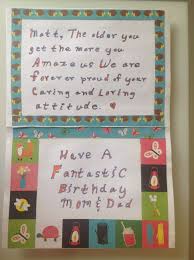 Matt, The older you
get the more you
Amaze us We are
forever proud of your
Caring and Loving
attitude.
Have A
Fantastic
Birthday
Mom & Dad